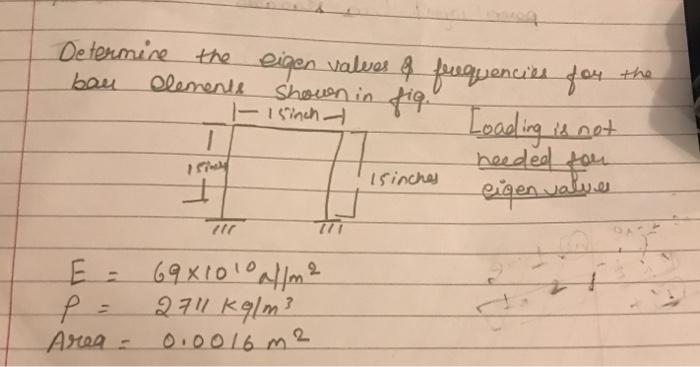 Determine the eigen values & frequencies for the
bar Elements Shown in fig.
15inch
Loading is not
needed for
eigen values
15inch
15inches
E = 69×10¹⁰ N/m²
ρ = 2711 Kg/m³
Area = 0.0016 m²